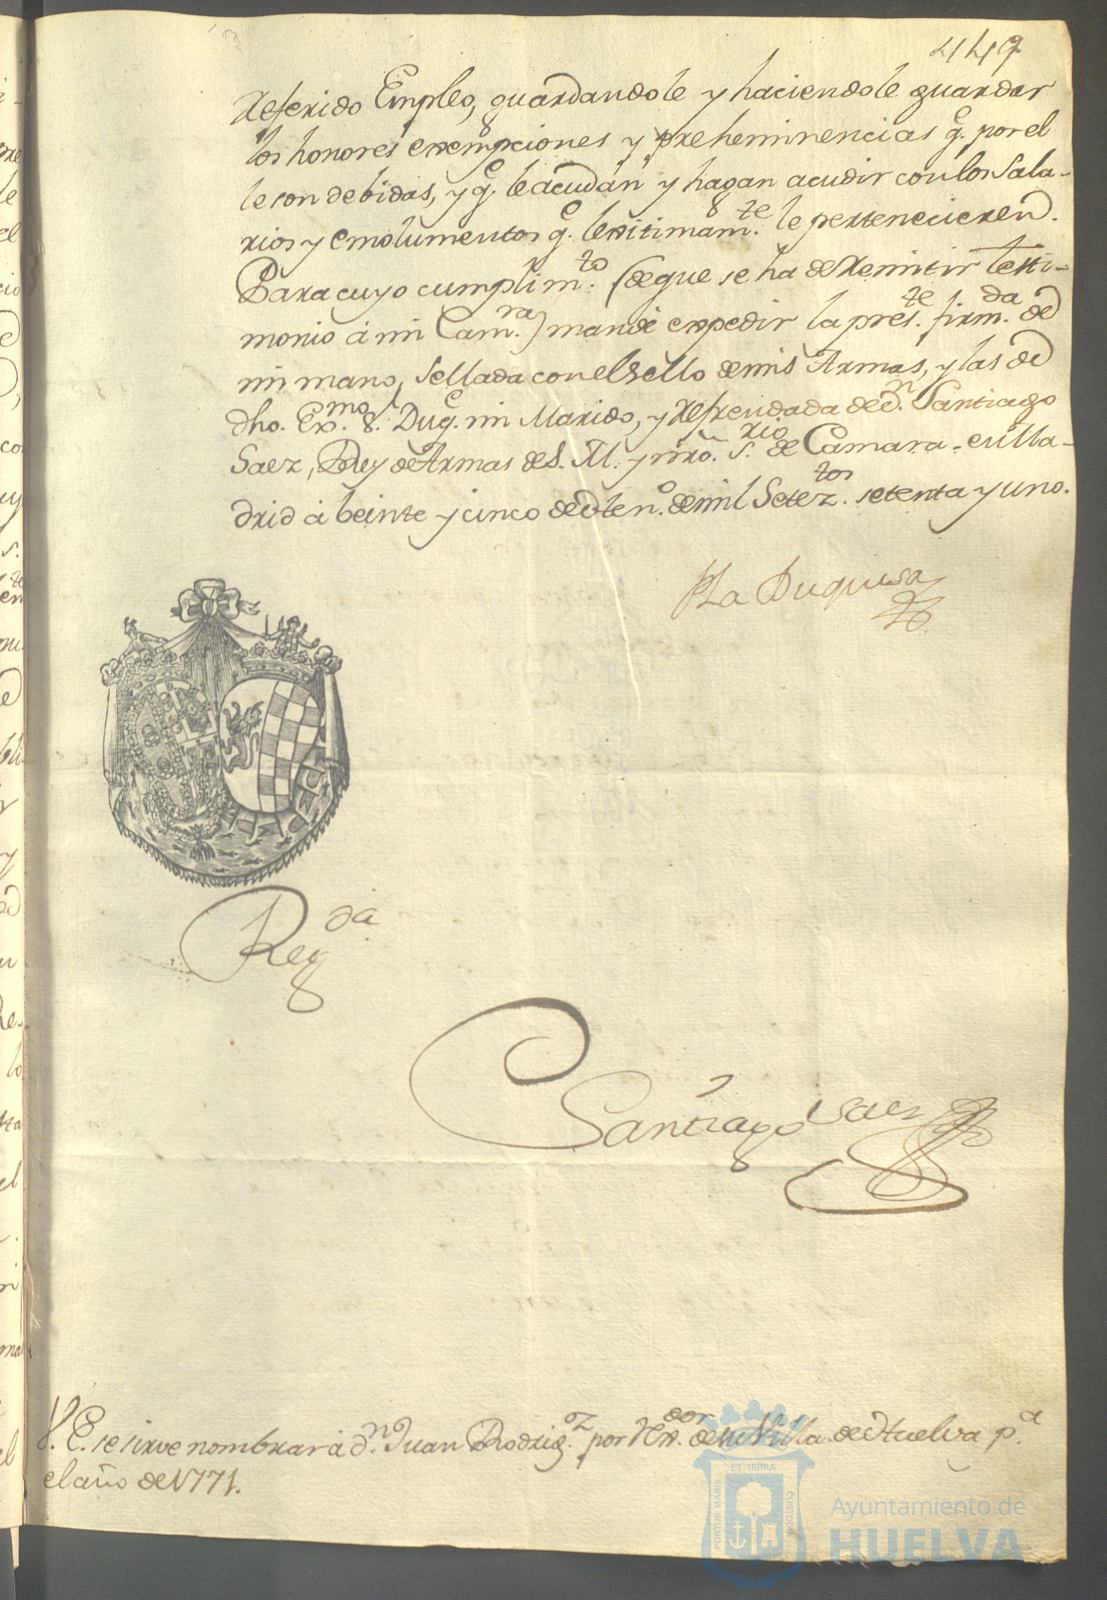 449
referido Empleo, guardandole y haciendole guardar
los honores exempciones y preheminencias q.e por el
le son debidas, y q.e le acudan y hagan acudir con los sala-
rios y emolumentos q.e lexitimam.te le pertenecieren.
Para cuyo cumplim.to (de que se ha de remitir testi-
monio á mi Cam.ra) mandé expedir la pres.te firm.da de
mi mano, sellada con el sello de mis Armas, y las de
dho. Ex.mo S. Duq.e mi Marido, y refrendada de d.n Santiago
Saez, Rey de Armas de S. M. y nrõ. S.rio de Camara. en Ma-
drid á beinte y cinco de En.o de mil Setez.tos setenta y uno.
La Duquesa
Reg.da
Santiago Saez
V. E. se sirve nombrar á d.n Juan Rodrig.z por Rx.dor de su Villa de Huelva p.a
el año de 1771.
PORTUS MARIS ET TERRÆ CUSTODIA
Ayuntamiento de
HUELVA